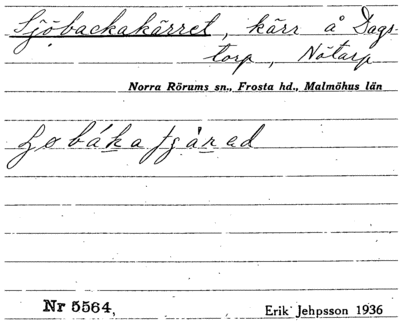 Sjöbackakärret, kärr å Dags-
torp, Nötarp
Norra Rörums sn., Frosta hd., Malmöhus län
Nr 5564,
Erik Jehpsson 1936